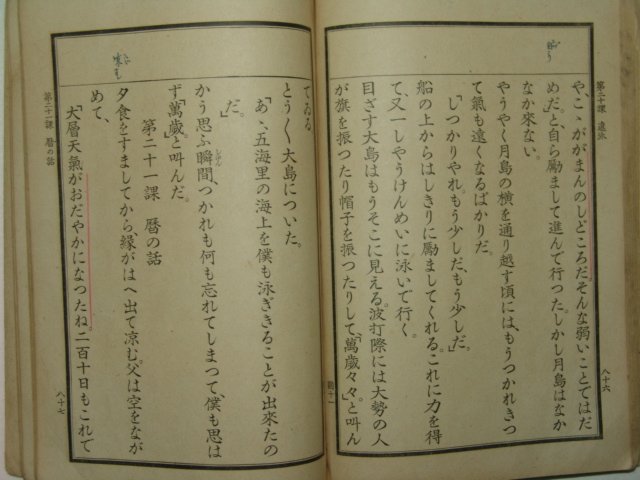 第二十課 遠泳
八十六
や、こゝががまんのしどころだ。そんな弱いことではだ
めだ。」と自ら勵まして進んで行つた。しかし月島はなか
なか來ない。
やうやく月島の横を通り越す頃には、もうつかれきつ
て氣も遠くなるばかりだ。
「しつかりやれ。もう少しだ、もう少しだ。」
船の上からはしきりに勵ましてくれる。これに力を得
て、又一しやうけんめいに泳いで行く。
目ざす大島はもうそこに見える。波打際には大勢の人
が旗を振つたり帽子を振つたりして、「萬歳々々。」と叫ん
てゐる
とうく大島についた。
「あゝ、五海里の海上を僕も泳ぎきることが出來たの
だ。」
かう思ふ瞬間、つかれも何も忘れてしまつて、僕も思は
しゆん
ず「萬歳」と叫んだ。
第二十一課 暦の話
夕食をすましてから、縁がはへ出て凉む。父は空をなが
めて、
「大層天氣がおだやかになつたね。二百十日もこれて
第二十一課 暦の話
八十七